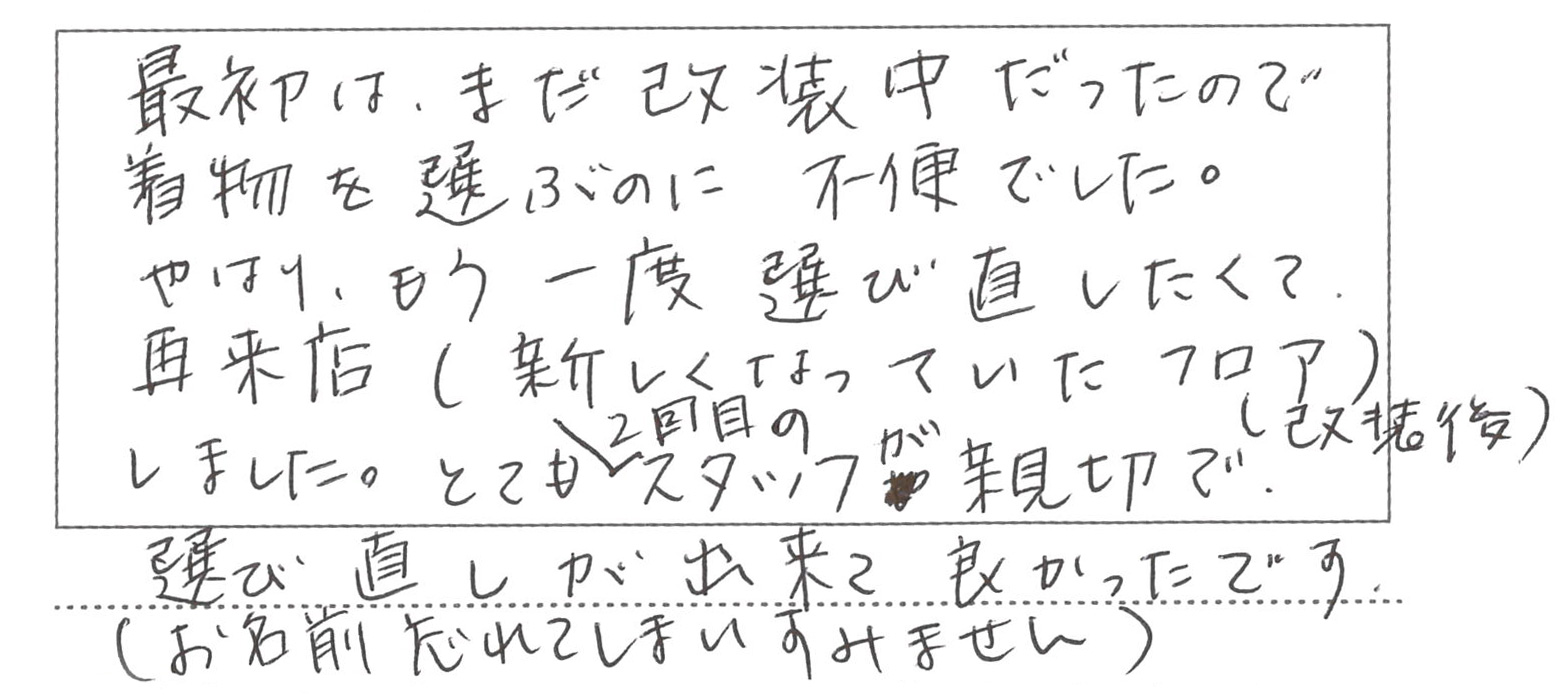 最初は、まだ改装中だったので
着物を選ぶのに不便でした。
やはり、もう一度選び直したくて、
再来店(新しくなっていたフロア)
(改装後)
2回目の
しました。とてもスタッフが親切で、
選び直しが出来て良かったです。
(お名前忘れてしまいすみません)